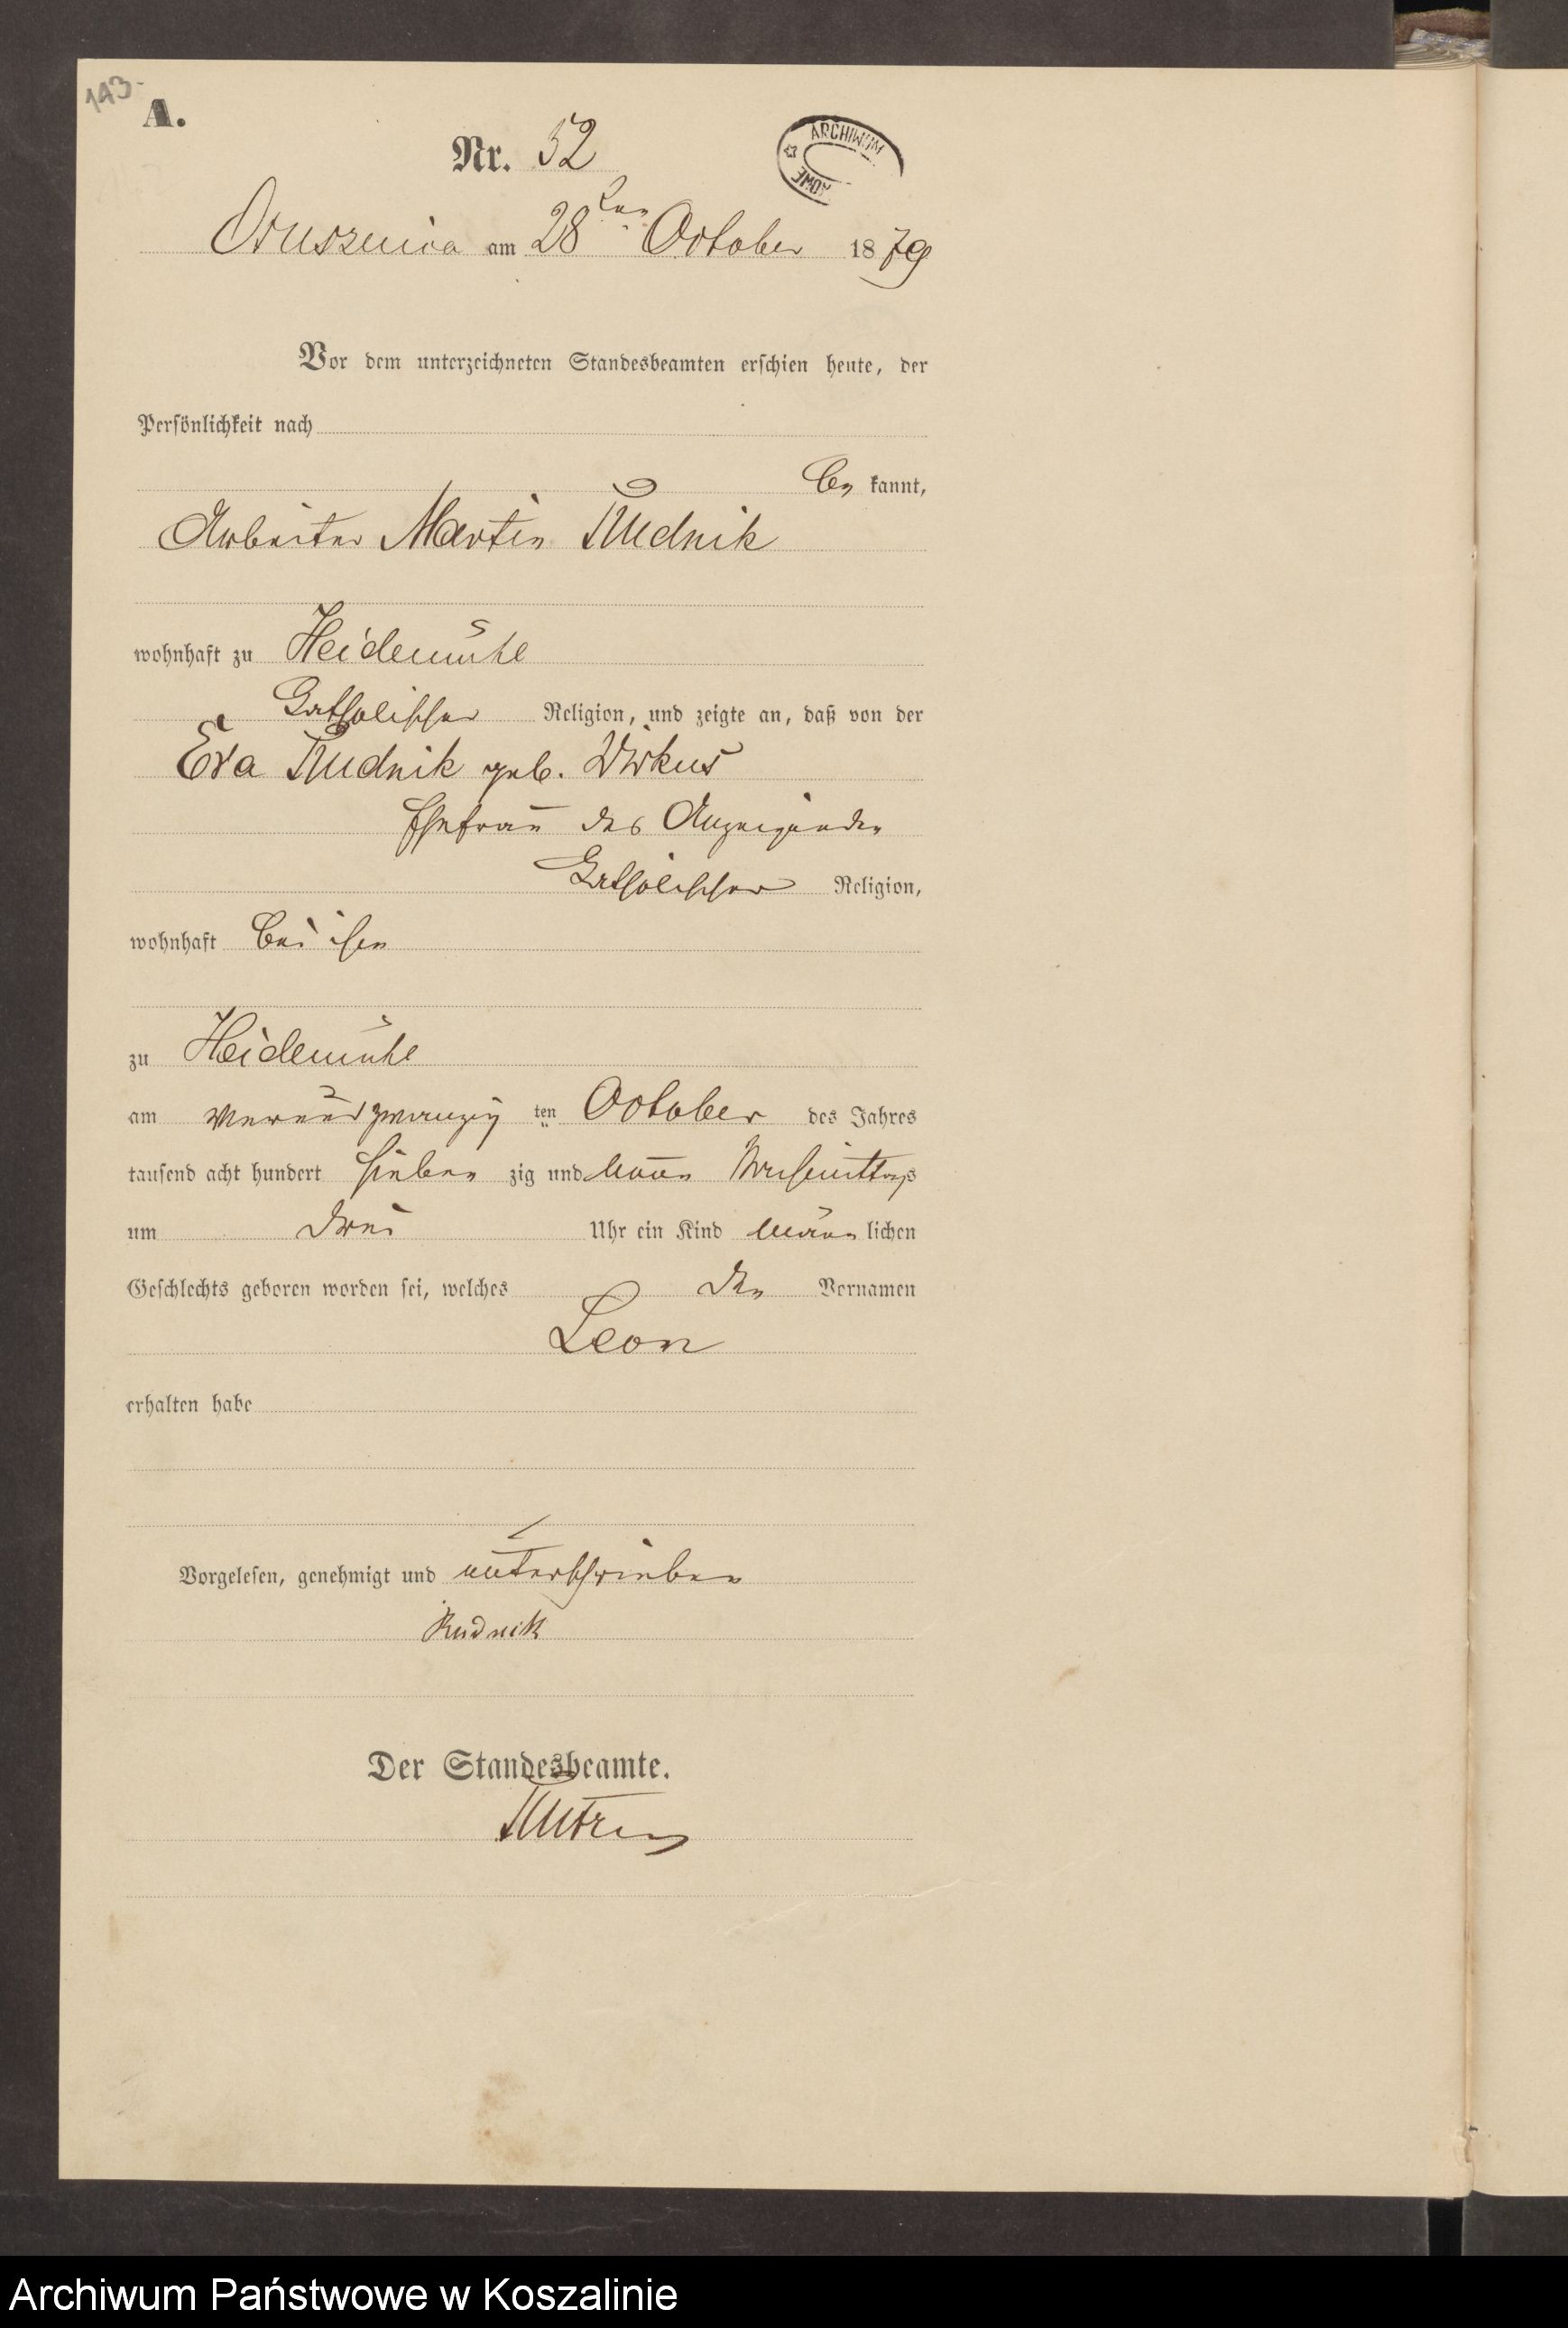 143-
A.
Nr. 52
ARCHIWUM
OWE
Ostusznica am 28ten October 1879
Vor dem unterzeichneten Standesbeamten erschien heute, der
Persönlichkeit nach
be kannt,
Arbeiter Martin Rudnik
wohnhaft zu Heidemühl
Catholischer Religion, und zeigte an, daß von der
Eva Rudnik geb. Wirkus
Ehefrau des Anzeigenden
Catholischer Religion,
wohnhaft bei ihm
zu Heidemühl
am vierundzwanzig ten October des Jahres
tausend acht hundert sieben zig und neun Nachmittags
um drei Uhr ein Kind männ lichen
Geschlechts geboren worden sei, welches den Vornamen
Leon
erhalten habe
Vorgelesen, genehmigt und unterschrieben
Rudnik
Der Standesbeamte.
Archiwum Państwowe w Koszalinie